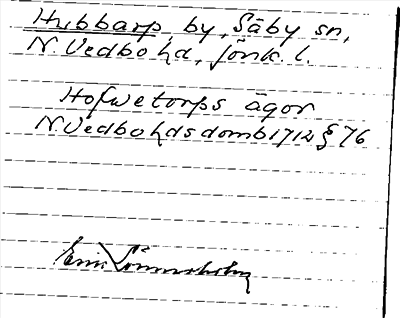 Hubbarp, by, Säby sn,
N. Vedbo hd, Jönk. l.
Hofwetorps ägor
N. Vedbo hds domb 1712 § 76